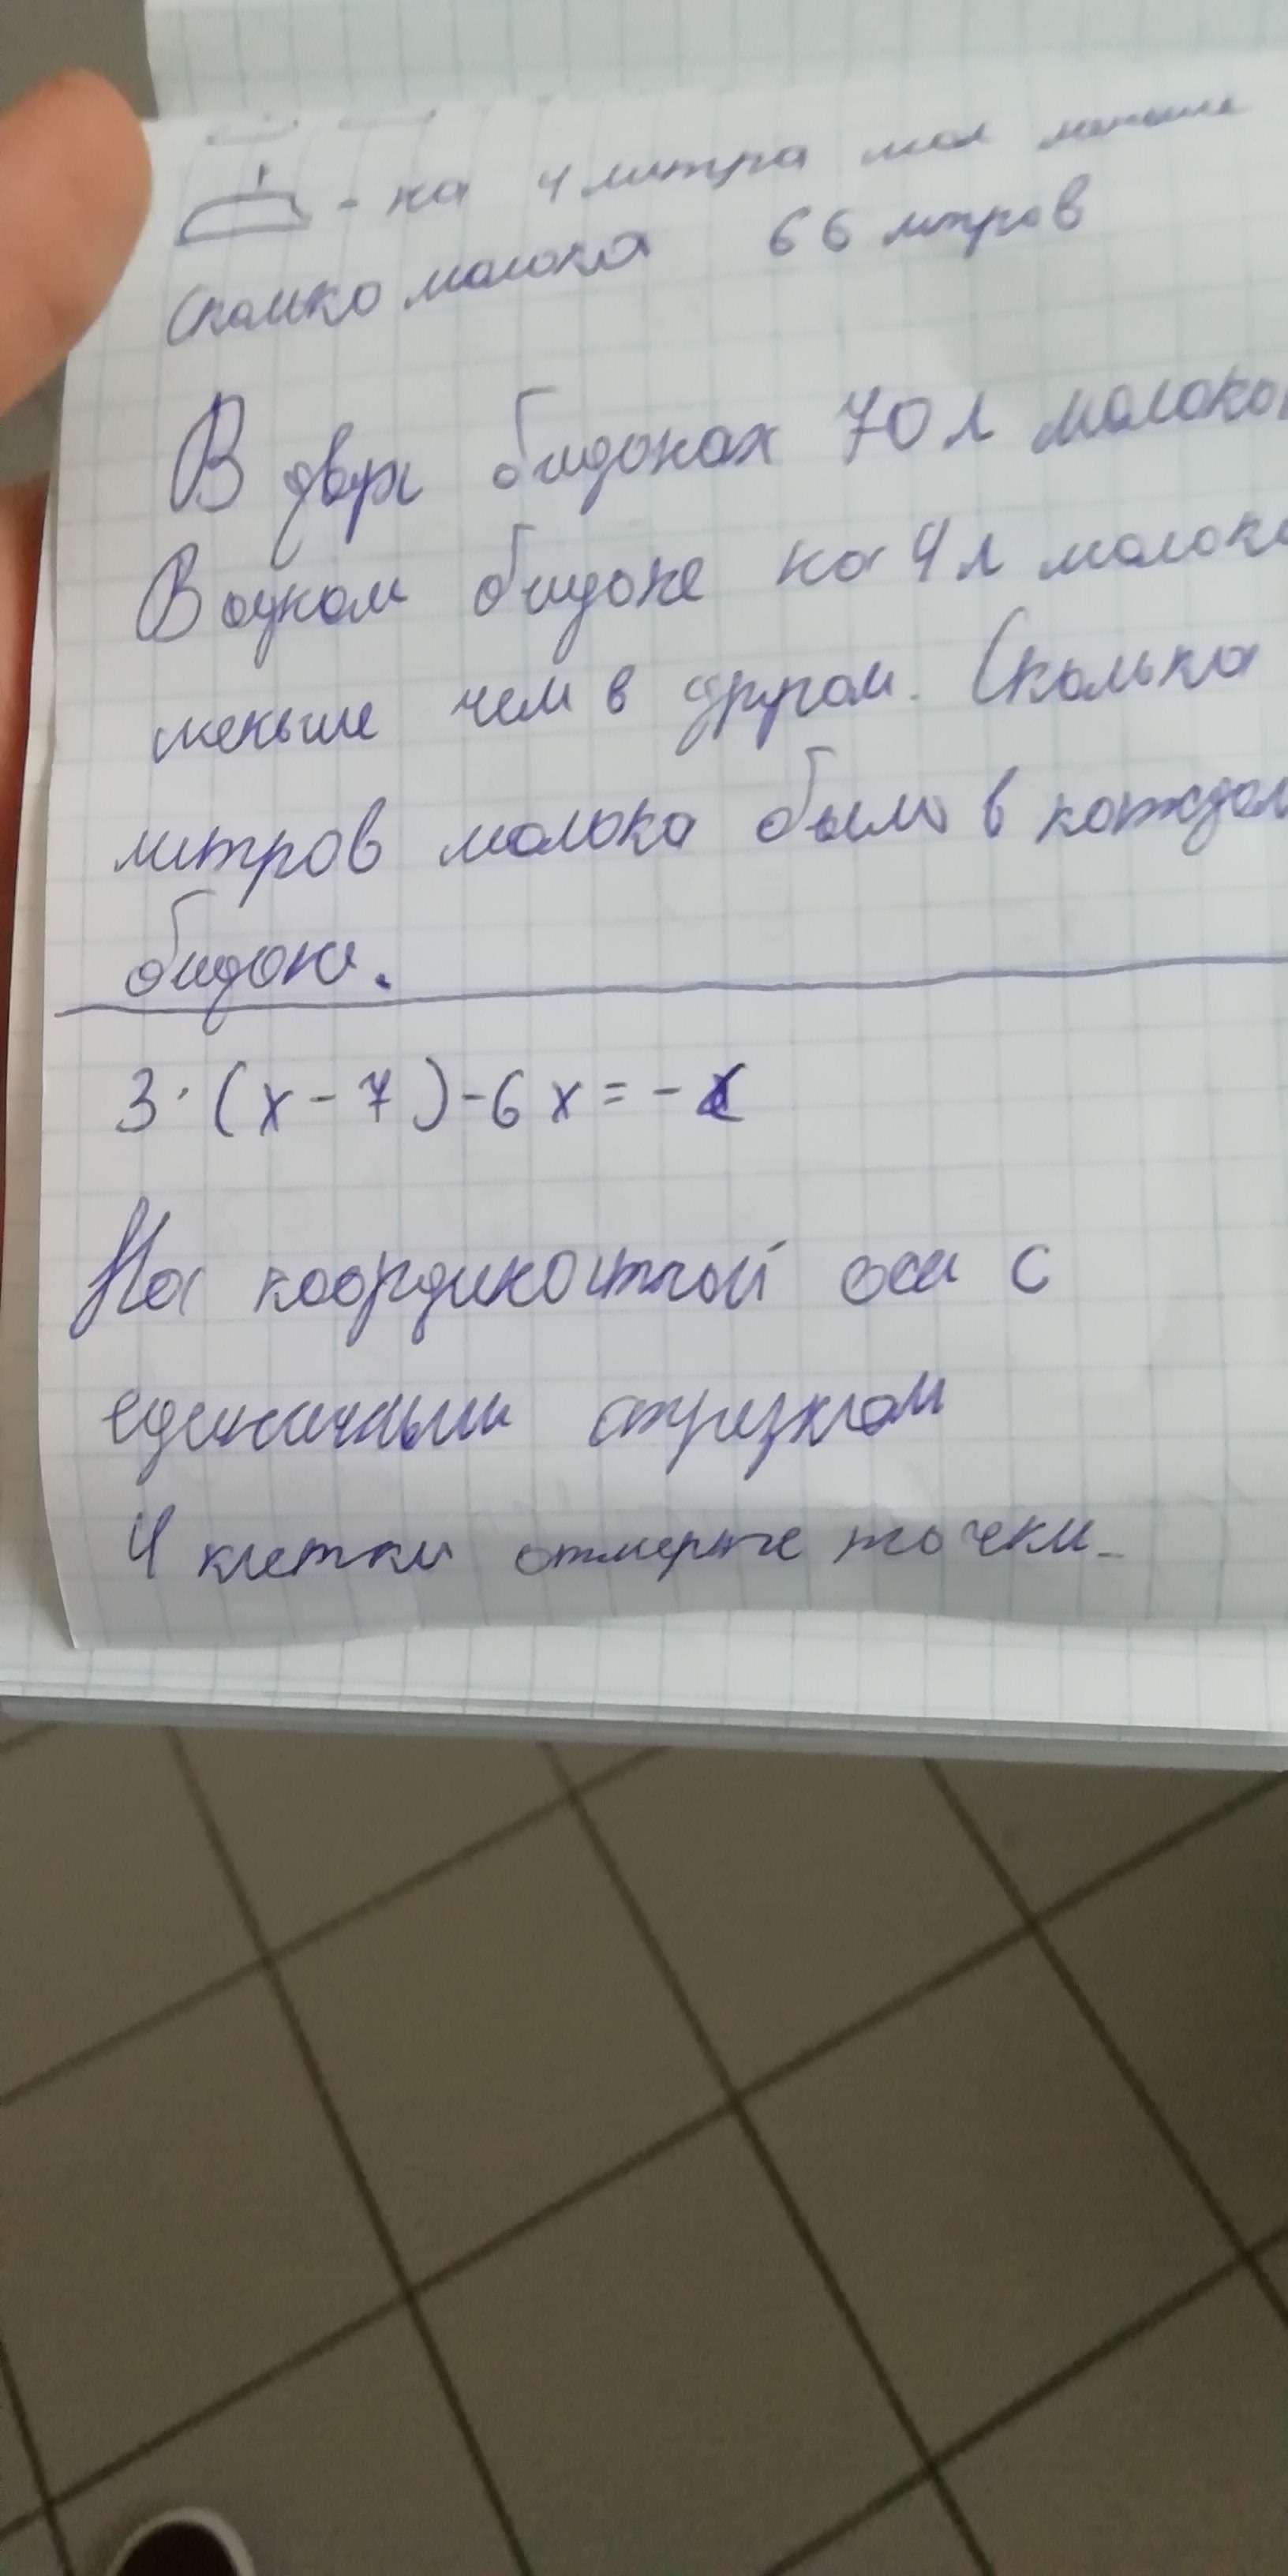 - на 4 литра мол меньше
Сколько молока 66 литров
В двух бидонах 70 л молока
В одном бидоне на 4 л молока
меньше чем в другом. Сколько
литров молока было в каждом
бидоне.
3·(x-7)-6x=-x
На координатной оси с
единичным отрезком
4 клетки отмерьте точки_